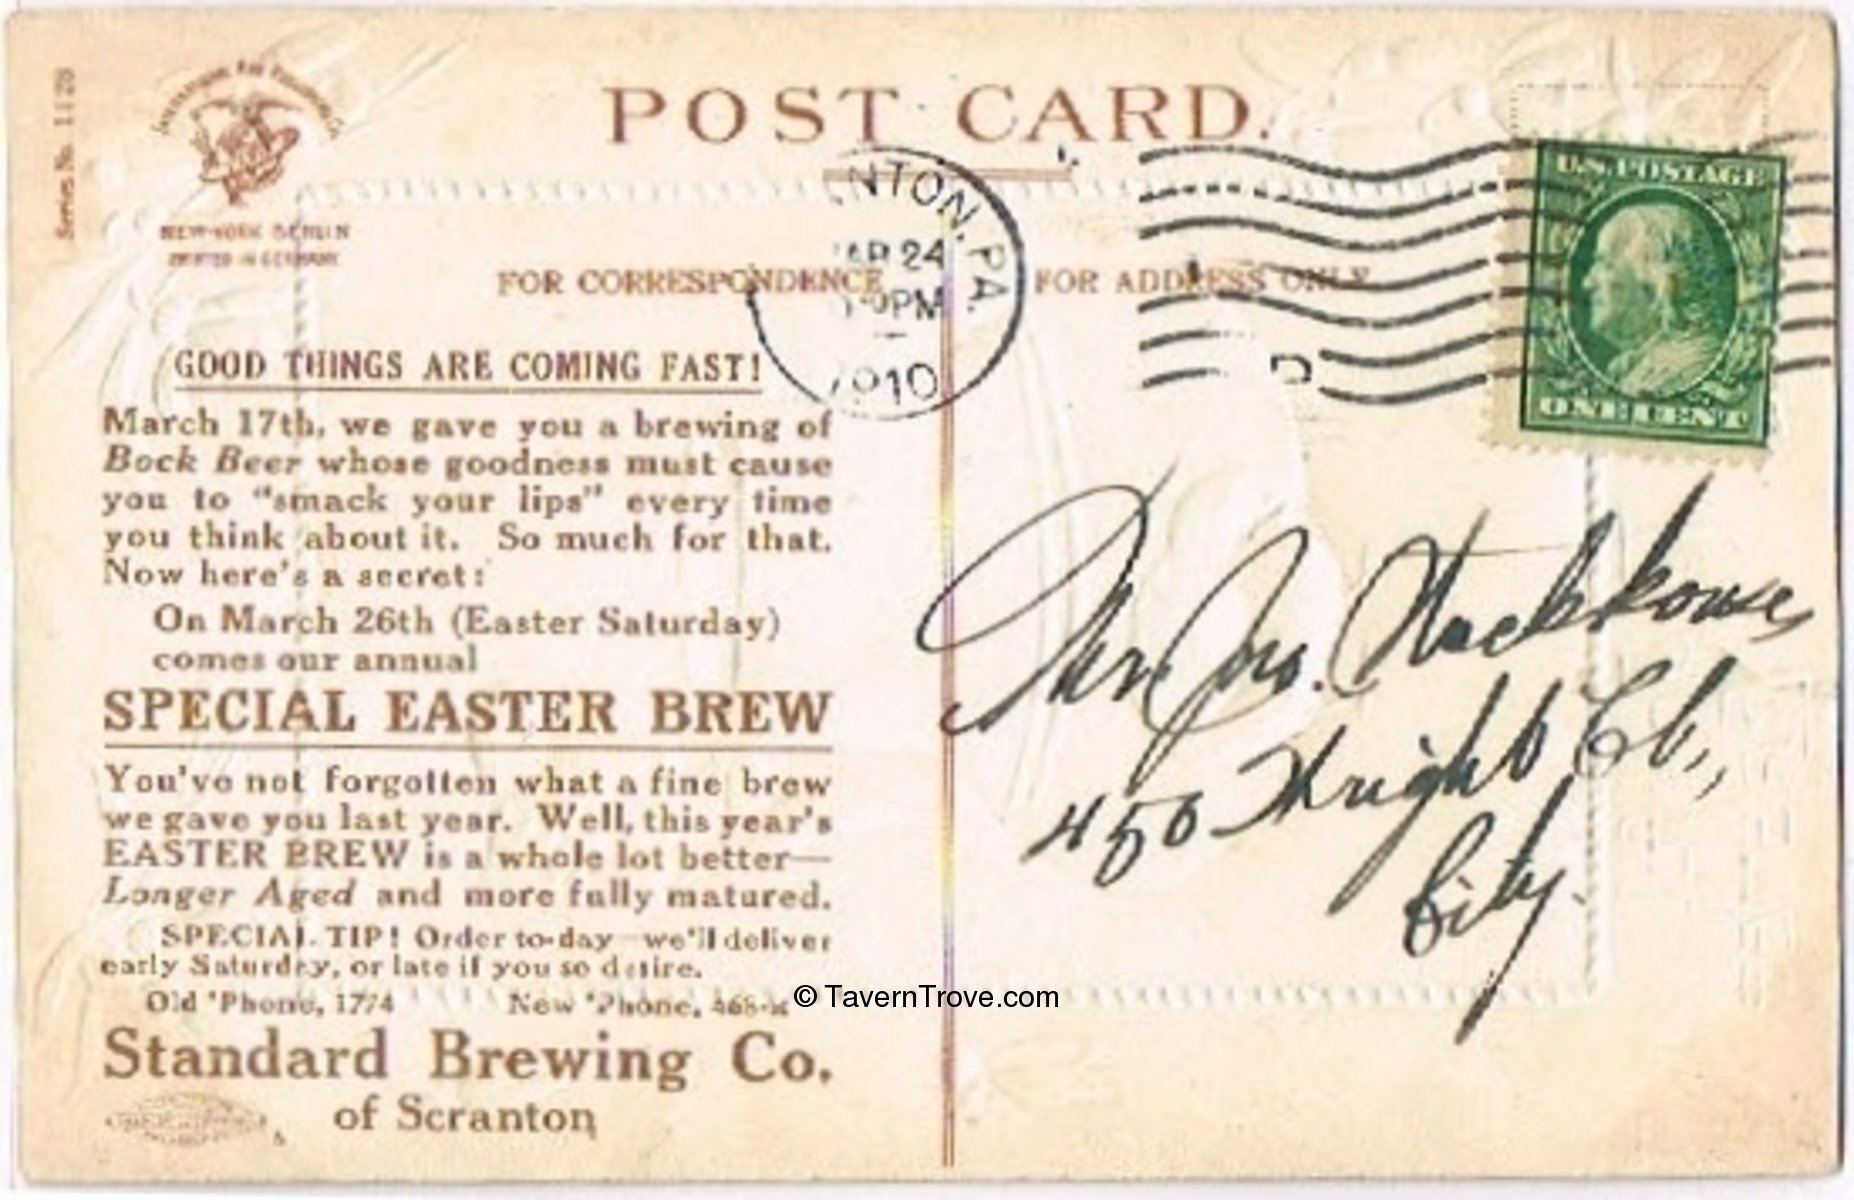 Series No. 1128
INTERNATIONAL ART PUBLISHING Co.
NEW-YORK BERLIN
PRINTED IN GERMANY
POST CARD.
NTON, PA.
AR 24
PM
1910
D
U.S. POSTAGE
ONE CENT
FOR CORRESPONDENCE
FOR ADDRESS ONLY
GOOD THINGS ARE COMING FAST!
March 17th, we gave you a brewing of
Bock Beer whose goodness must cause
you to "smack your lips" every time
you think about it. So much for that.
Now here's a secret:
On March 26th (Easter Saturday)
comes our annual
SPECIAL EASTER BREW
You've not forgotten what a fine brew
we gave you last year. Well, this year's
EASTER BREW is a whole lot better—
Longer Aged and more fully matured.
SPECIAL TIP! Order to-day—we'll deliver
early Saturday, or late if you so desire.
Old 'Phone, 1774 New 'Phone,
Standard Brewing Co.
of Scranton
Jno.
450 Wright Ct.,
City.
© TavernTrove.com